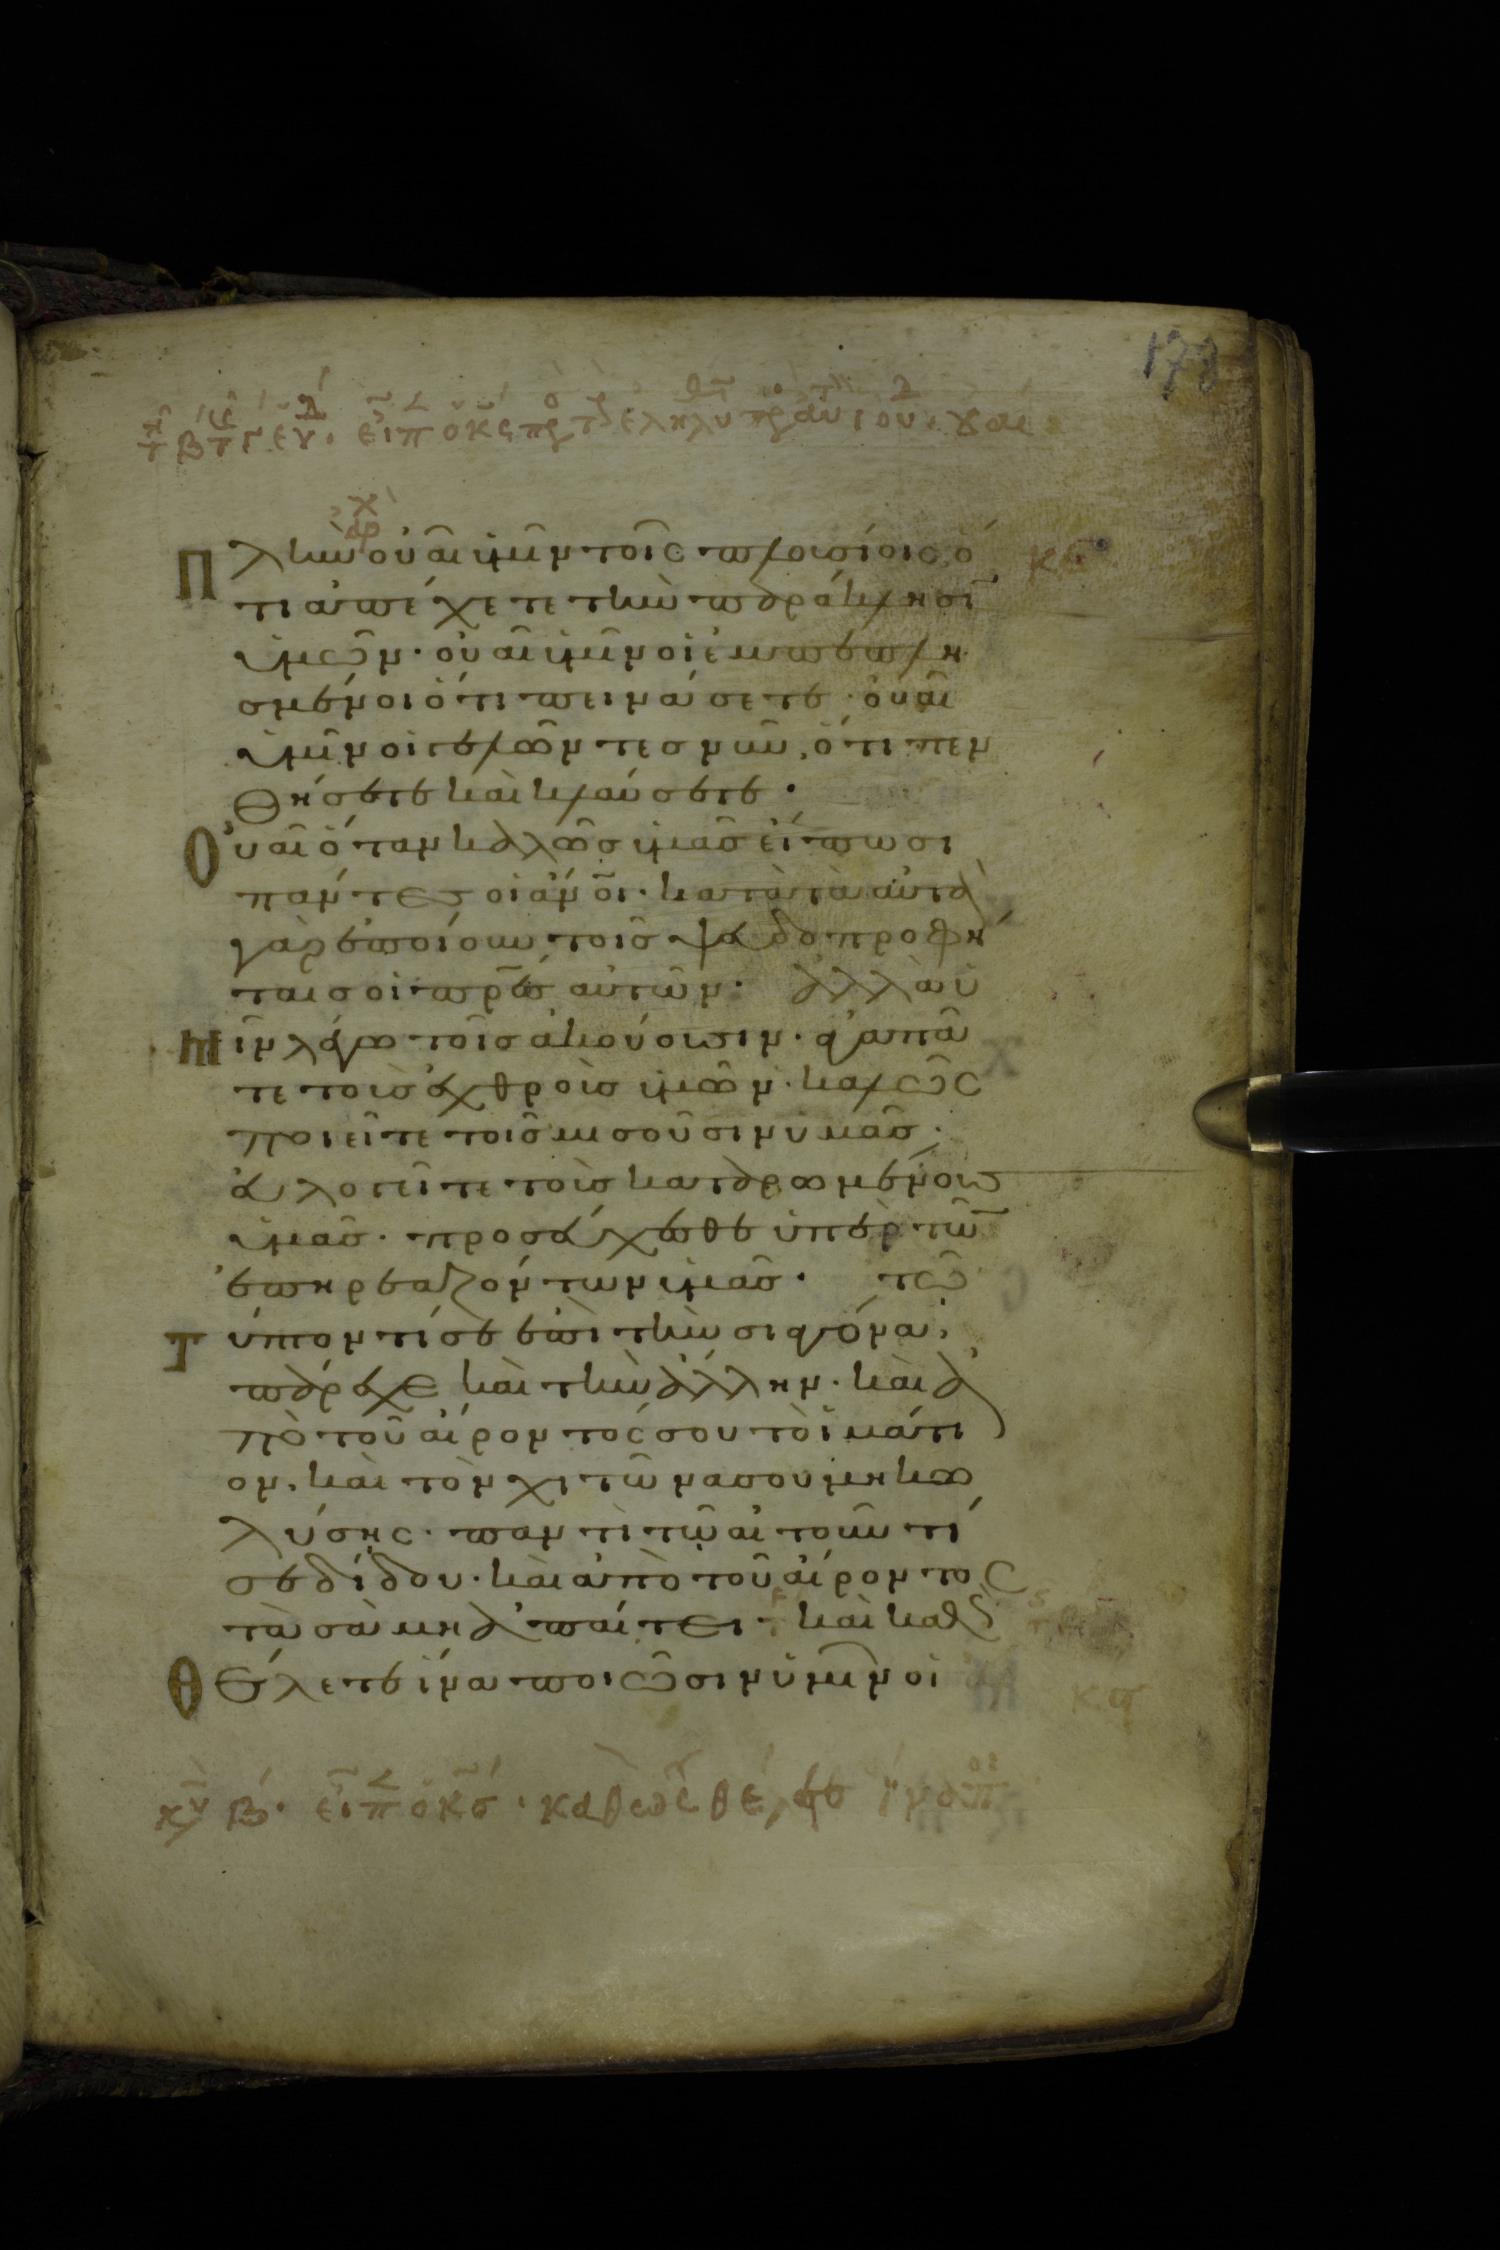 178
Πλὴν οὐαὶ ὑμῖν τοῖς πλουσίοις, ὅ
τι ἀπέχετε τὴν παράκλησῑ
ὑμῶν· οὐαὶ ὑμῖν οἱ ἐμπεπλη
σμένοι ὅτι πεινάσετε· οὐαὶ
ὑμῖν οἱ γελῶντες νῦν, ὅτι πεν
θήσετε καὶ κλαύσετε·
Οὐαὶ ὅταν καλῶς ὑμᾶς εἴπωσι
πάντες οἱ ἄνοι· κατὰ τὰ αὐτὰ
γὰρ ἐποίουν τοῖς ψευδοπροφή
ταις οἱ πρες αὐτῶν· ἀλλὰ ὑ
μῖν λέγω τοῖς ἀκούουσιν· ἀγαπᾶ
τε τοὺς ἐχθροὺς ὑμῶν· καλῶς
ποιεῖτε τοῖς μισοῦσιν ὑμᾶς·
εὐλογεῖτε τοὺς καταρωμένους
ὑμᾶς· προσεύχεσθε ὑπὲρ τῶ
ἐπηρεαζόντων ὑμᾶς· τῶ
τύπτοντί σε ἐπὶ τὴν σιαγόνα,
πάρεχε καὶ τὴν ἄλλην· καὶ ἀ
πὸ τοῦ αἴροντός σου τὸ ἱμάτι
ον, καὶ τὸν χιτῶνα σου μὴ κω
λύσης· παντὶ τῶ αἰτοῦντί
σε δίδου· καὶ ἀπὸ τοῦ αἴροντος
τὰ σὰ μὴ ἀπαίτει· καὶ καθὼς
θέλετε ἵνα ποιῶσιν ὑμῖν οἱ